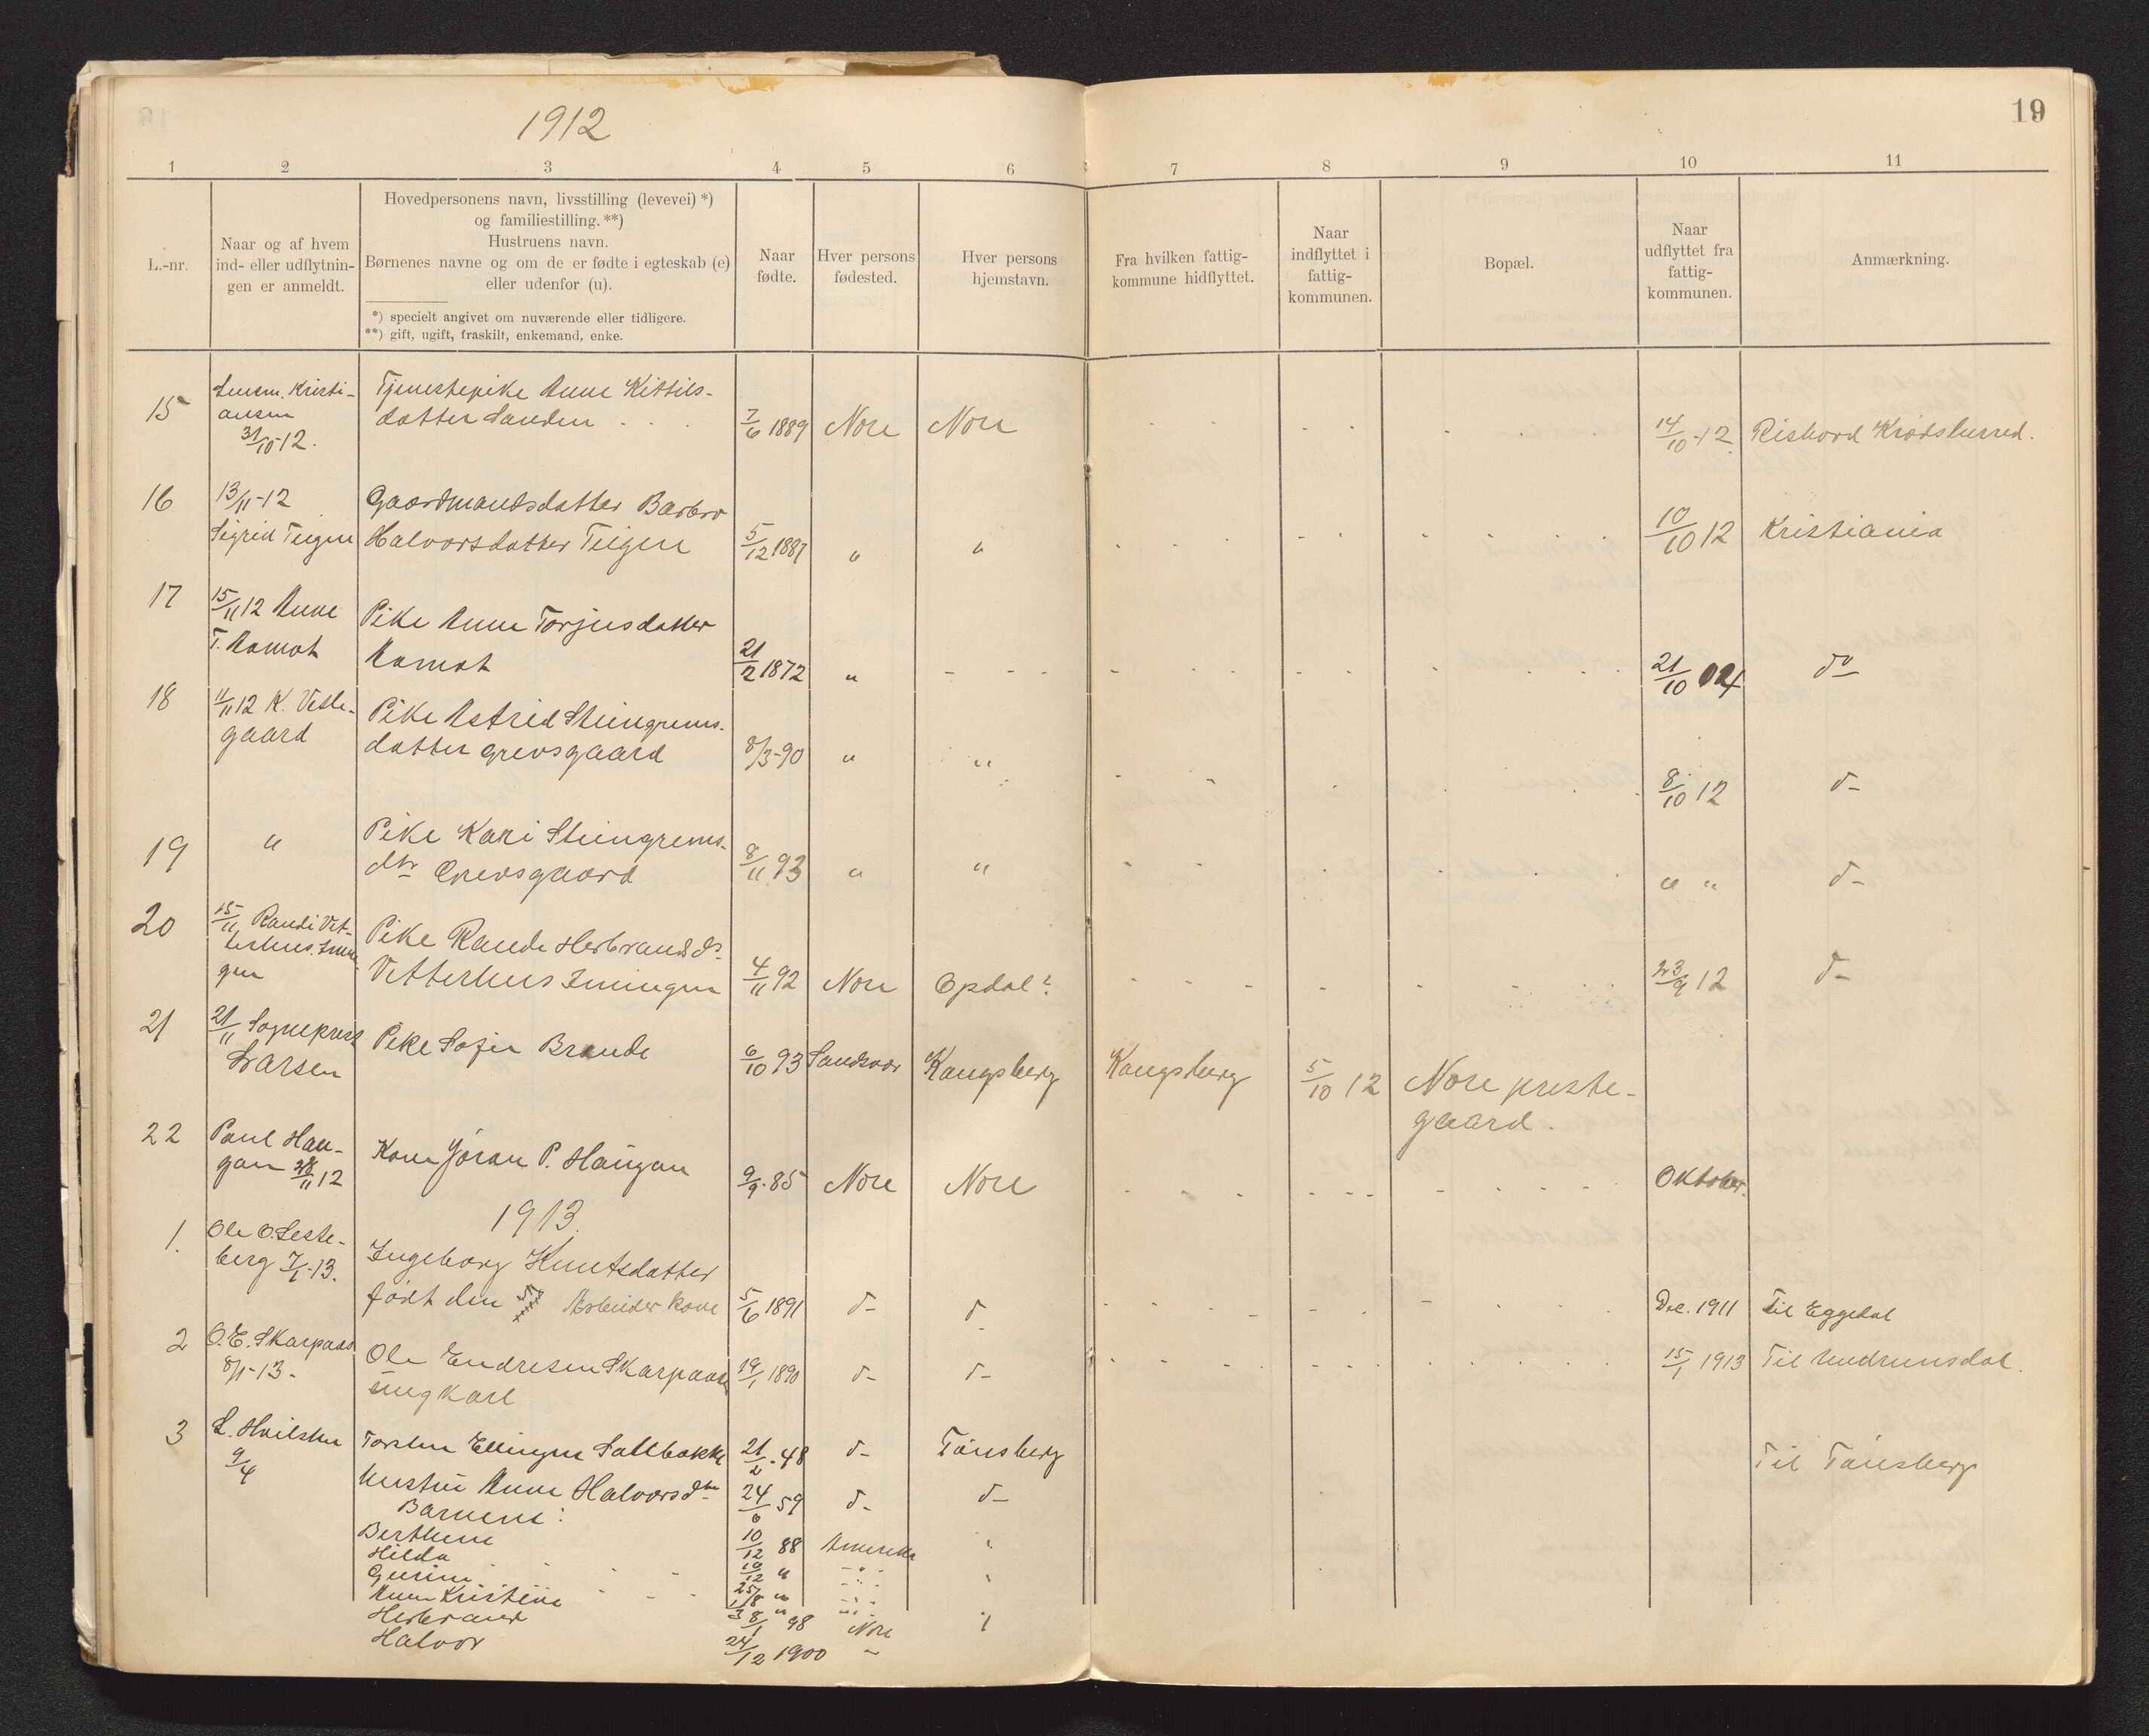 19
1912
1 2 3 4 5 6 7 8 9 10 11
L.-nr.
Naar og af hvem
ind- eller udflytnin-
gen er anmeldt.
Hovedpersonens navn, livsstilling (levevei) *)
og familiestilling. **)
Hustruens navn.
Børnenes navne og om de er fødte i egteskab (e)
eller udenfor (u).
*) specielt angivet om nuværende eller tidligere.
**) gift, ugift, fraskilt, enkemand, enke.
Naar
fødte.
Hver persons
fødested.
Hver persons
hjemstavn.
Fra hvilken fattig-
kommune hidflyttet.
Naar
indflyttet i
fattig-
kommunen.
Bopæl.
Naar
udflyttet fra
fattig-
kommunen.
Anmærkning.
15
Lensm. Kristi-
ansen
31/10-12.
Tjenestepike Anne Kittils-
datter Sanden
7/6 1889 Nore Nore 14/10-12
16
13/11-12
Sigrid Teigen
Gaardmandsdatter Barbro
Halvorsdatter Teigen
5/12 1887 " " 10/10 12 Kristiania
17
15/11 12 Anne
T. Aamot
Pike Anne Torjusdatter
Aamot
21/2 1872 " - - - 21/10 do
18
11/11 12 K. Vesle-
gaard
Pike Astrid Steingrims-
datter Grevsgaard
8/3-90 " " 8/10 12 d-
19
"
Pike Kari Steingrims-
dtr Grevsgaard
8/11 93 " " " " d-
20
15/11 Randi Vet-
terhus
Pike Rande Herbrandsd-
Vetterhus
4/11 92 Nore Opdal? 23/9 12 d-
21
21/11 Sogneprest
Larsen
Pike Sofie Brande
6/10 93 Sandsvær Kongsberg Kongsberg 5/10 12 Nore preste-
gaard.
22
Paul Hau-
gan 28/11 12
Kone Jøran P. Haugan
9/9-85 Nore Nore Oktober.
1913.
1.
Ole O. Leste-
berg 7/1-13.
Ingeborg Knutsdatter
født den Arbeider kone
5/6 1891 d- d- Dec. 1911 Til Eggedal
2
O. E. Skarpaas
8/1-13-
Ole Endresen Skarpaas
ungkarl
19/1 1890 d- d- 15/1 1913
3
9/4
Torsten Ellingsen
21/2-48 d- Tønsberg Til Tønsberg
hustru Anne Halvorsdtr
24/6 59 d- d-
Barnene:
Berthine 10/12 88 Amerika "
Hilda 10/12 " - " - "
Gurine 25/8 " - " -
Anne Kristine 1/3 " - " -
Herbrand 8/1 98 Nore "
Halvor 24/12 1900 -